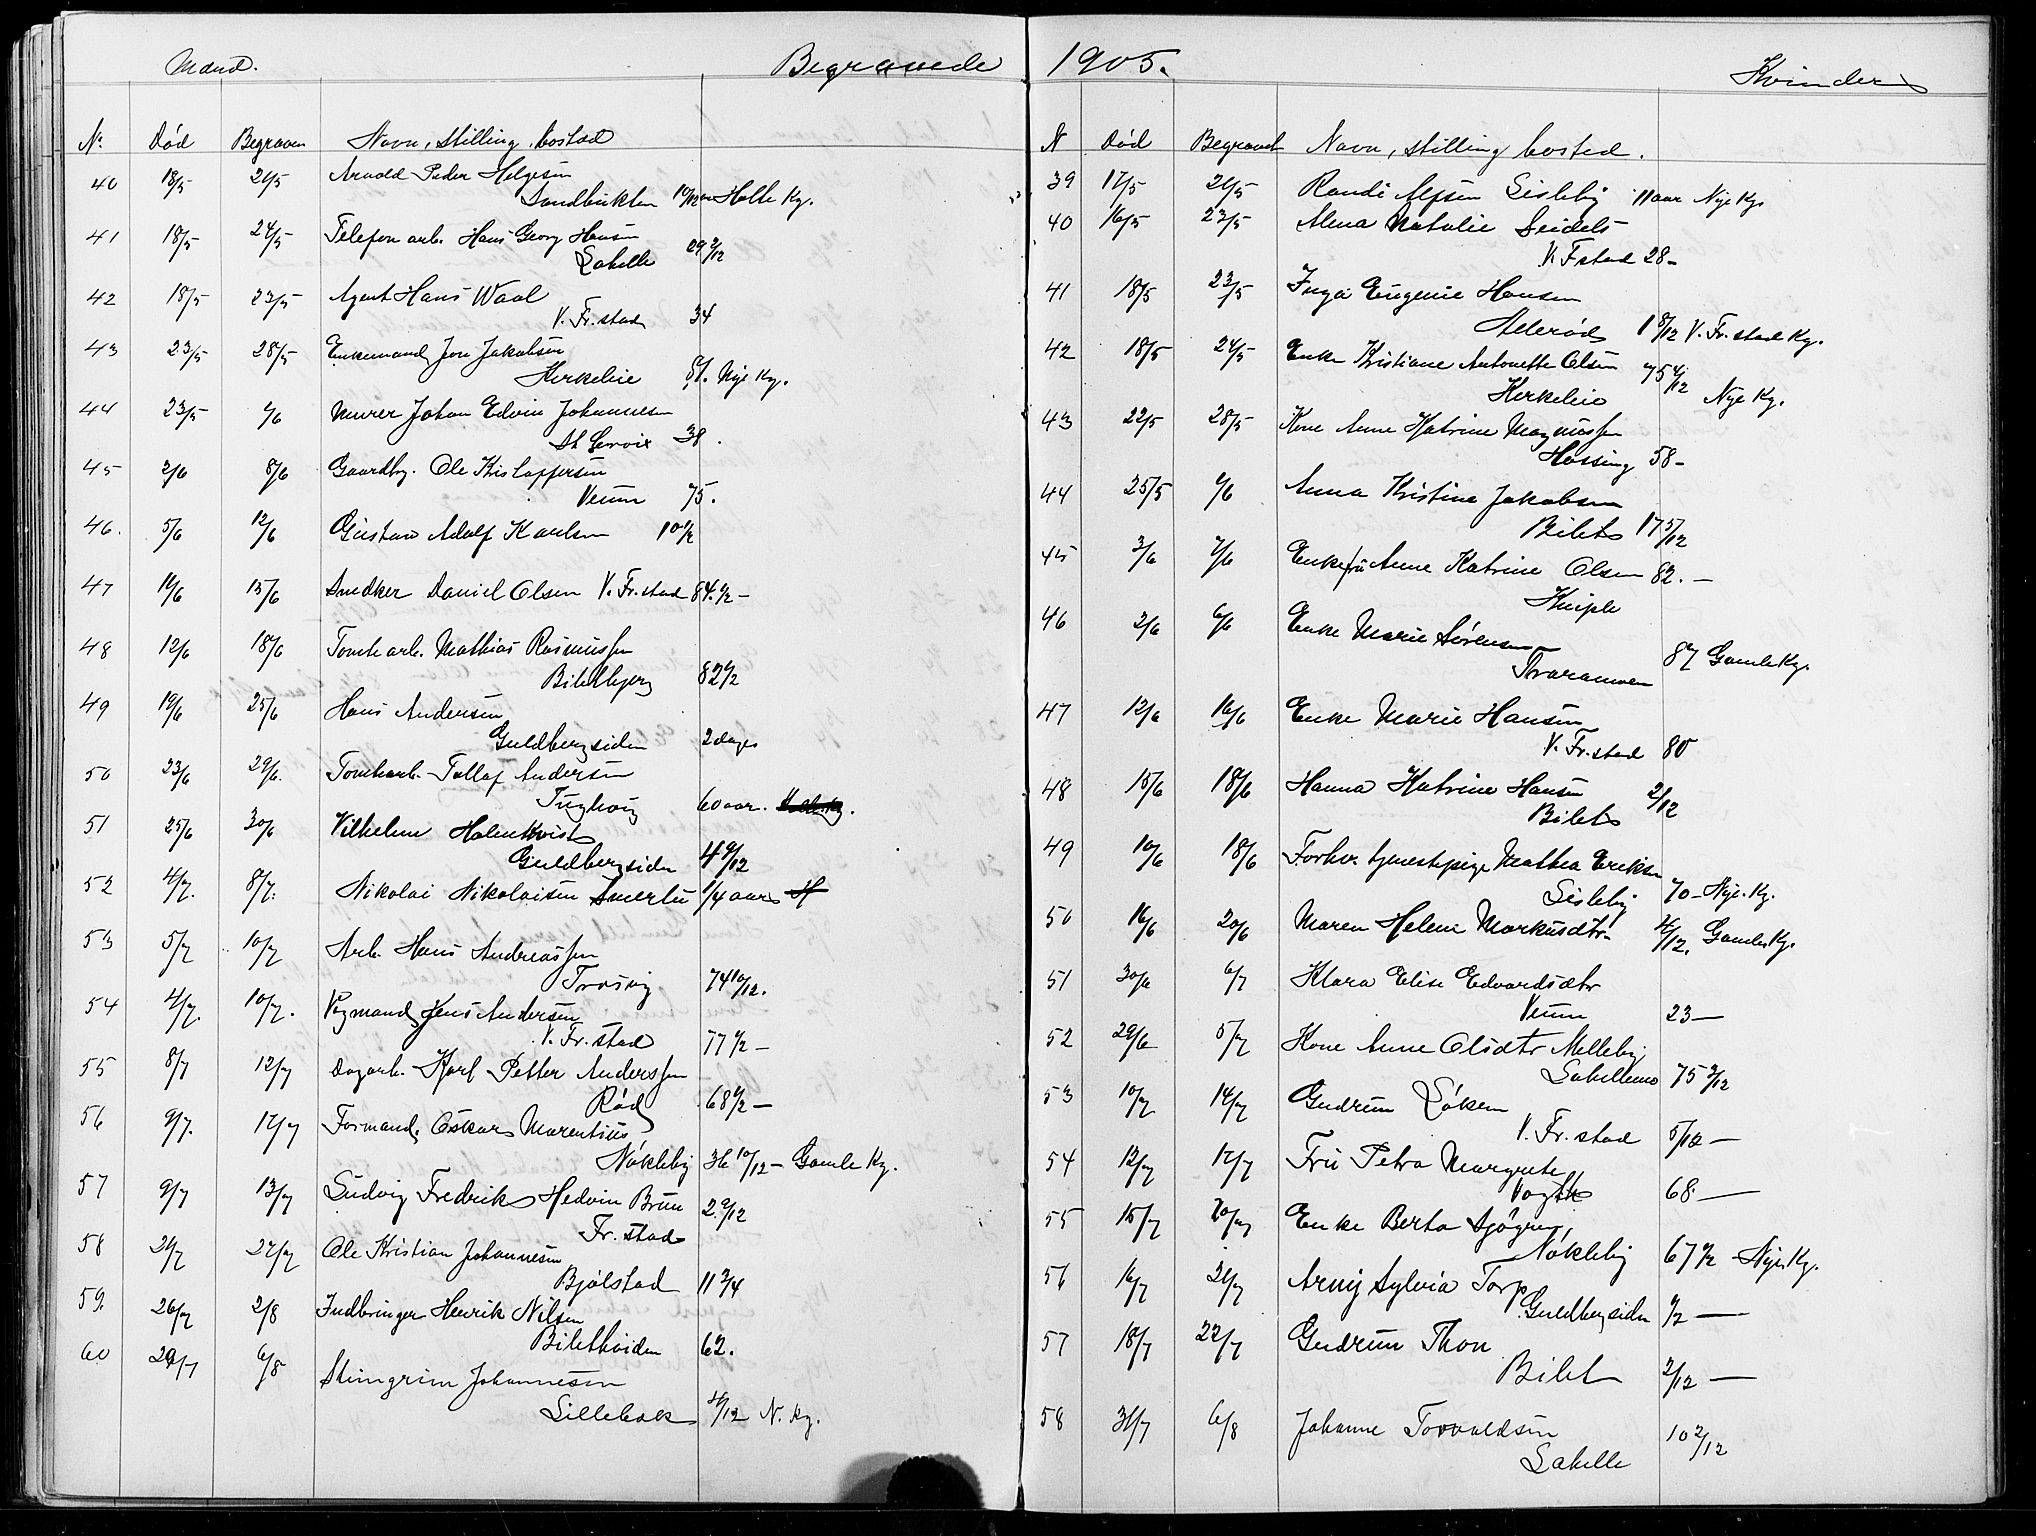 Mænd. Begravede
Nr. Død Begraven Navn, stilling, bosted
40 18/5 21/5 Arnold Peder Helgesen
Sandbukten 10/12 Holte Kg.
41 18/5 24/5 Telefon arb. Hans Georg Hansen
Lahelle 29 2/12
42 18/5 23/5 Agent Hans Waal
V. Fr. stad 34
43 23/5 28/5 Enkemand Jon Jakobsen
Kirkeleie 51. Nye Kg.
44 23/5 1/6 Murer Johan Edvin Johannesen
St Croix 38.
45 2/6 8/6 Gaardbr. Ole Kristoffersen
Veum 75.
46. 5/6 12/6 Gustav Adolf Karlsen 10 1/2
47 10/6 15/6 Snedker Daniel Olsen V. Fr. stad 84. 1/2 –
48 12/6 18/6 Tomtearb. Mathias Rasmussen
Biletbjerg 82 1/2
49 19/6 25/6 Hans Andersen
Guldbergsiden 2 dage
50 23/6 29/6. Tomtearb. Tollef Andersen
60 aar.
51 25/6 30/6 Vilhelm Holmkvist
Guldbergsiden 4 9/12
52 4/7. 8/7. Nikolai Nikolaisen Smertu 1/4 aar
53 5/7 10/7 Arb. Hans Andreassen
Trosvig 74 10/12.
54 4/7. 10/7. Vogmand Jens Andersen
V. Fr. stad 77 1/2 –
55 8/7 12/7 Dagarb. Karl Petter Anderssen
Rød 68 1/2 –
56 9/7. 17/7 Formand Oskar Marentius
Nøkleby 36 10/12 – Gamle Kg.
57 9/7 13/7 Ludvig Fredrik Hedvin Brun
Fr. stad 2 9/12
58 21/7 27/7 Ole Kristian Johannesen
Bjølstad 11 3/4
59. 26/7 2/8 Indbringer Henrik Nilsen
Bilethöiden 62.
60 29/7 6/8 Steingrim Johannesen
Lillebæk 4/12 N. kg.
1905. Kvinder
N Død Begravet Navn, stilling bosted.
39 17/5 21/5 Randi Alfsen Gisleby 11 aar Nye Kg.
40 16/5 23/5 Alma Natalie Seidel
V. Fstad 28 –
41 18/5 23/5 Inga Eugenie Hansen
Ålerød 1 8/12 V. Fr. stad Kg.
42 18/5 24/5 Enke Kristiane Antonette Olsen
Kirkeleie 75 4/12 Nye Kg.
43 22/5 28/5 Kone Anne Katrine Magnussen
Hassing 58 –
44 25/5 1/6 Anna Kristine Jakobsen
Bilet 17 5/12
45 3/6 7/6 Enkefru Anne Katrine Olsen 82. –
Kniple
46 2/6 6/6 Enke Marie Sørensen
Traraveien 87 Gamle Kg.
47 12/6 16/6 Enke Marie Hansen
V. Fr. stad 80
48 15/6 18/6 Hanna Katrine Hansen 2/12
Bilet
49 10/6 18/6 Forhv. tjenestepige Mathea Eriksen
Gisleby 70 – Nye. Kg.
50 16/6 20/6 Maren Helene Markusdtr. 4/12. Gamle Kg.
51 30/6 6/7 Klara Elise Edvardsdtr
Veum 23 –
52 29/6 5/7 Kone Anne Olsdtr Melleby
Lahellemo 75 2/12
53 10/7 14/7 Gudrun Løken
V. Fr. stad 5/12 –
54 12/7 17/7 Fru Petra Margrete
Vogth 68 –
55 15/7 20/7 Enke Berta Sjögren,
Nøkleby 67 1/2 – Nye Kg.
56 16/7 21/7 Arny Sylvia Torp
Guldbergsiden 1/2 –
57 18/7 22/7 Gudrun Thon
Bilet 2/12 –
58 31/7 6/8 Johanne Torvaldsen 10 2/12
Lahelle